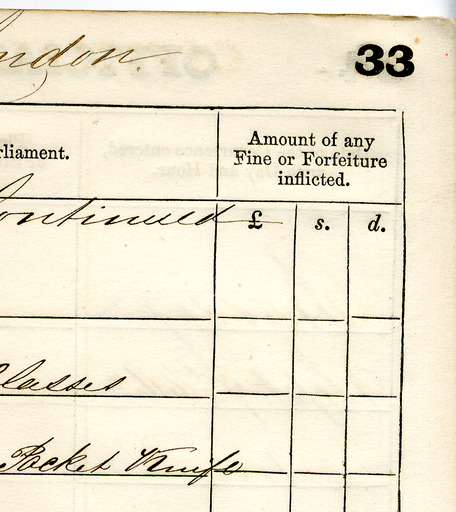 ndon.
33
rliament.
Amount of any
Fine or Forfeiture
inflicted.
ontinued
£ s. d.
lasses
Pocket Knife